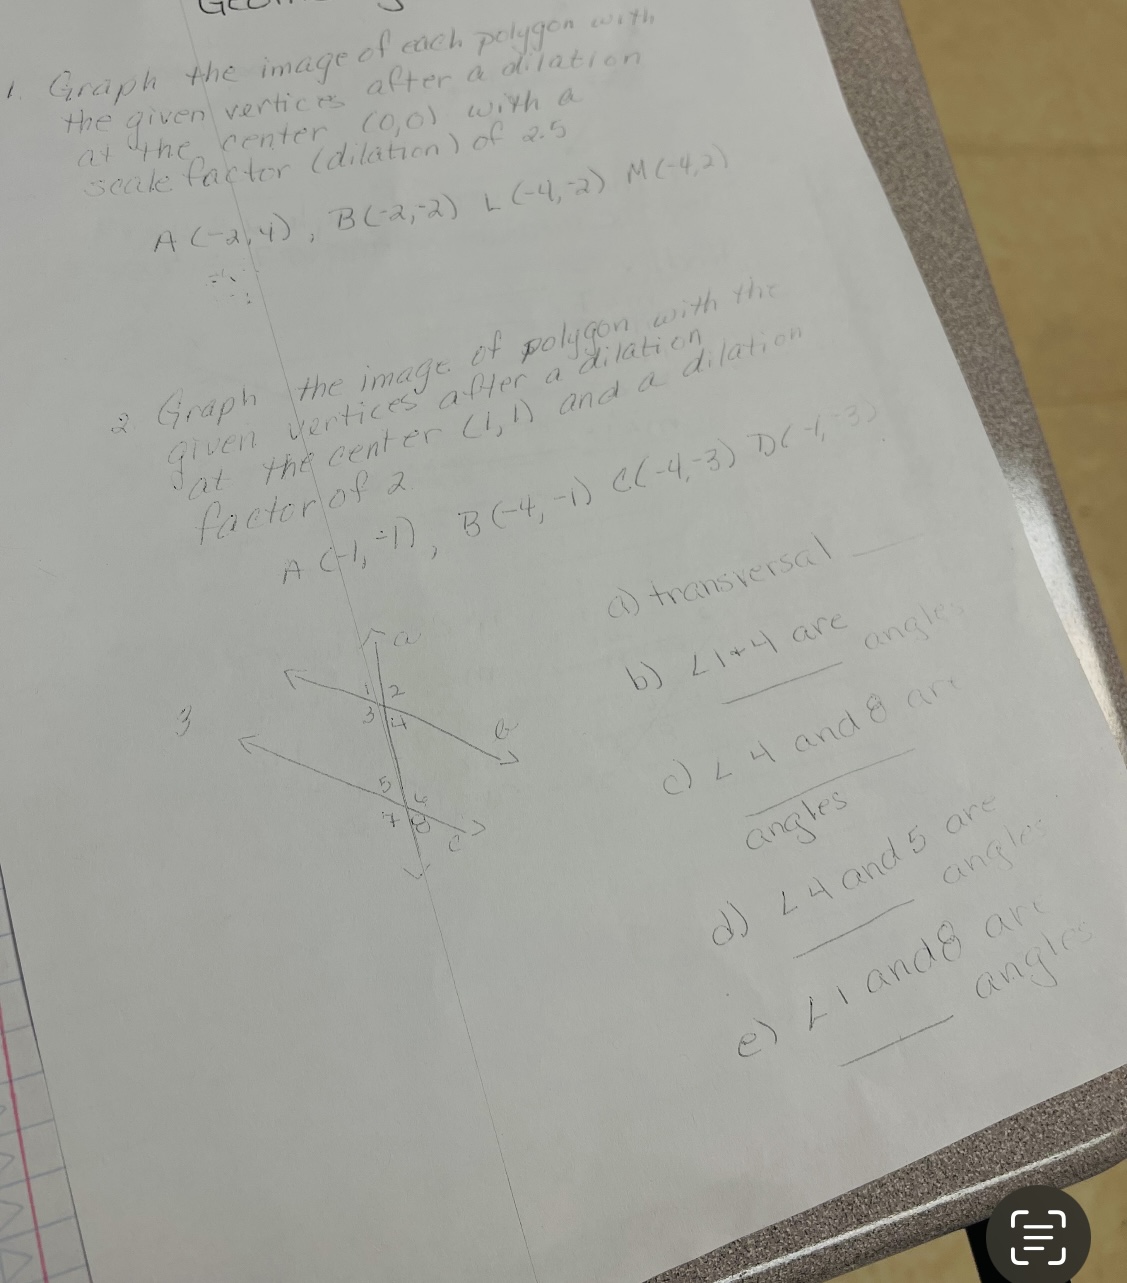 1. Graph the image of each polygon with
the given vertices after a dilation
at the center (0,0) with a
scale factor (dilation) of 2.5
A (-2,4), B(-2,-2) L (-4,-2) M(-4,2)
2 Graph the image of polygon with the
given vertices after a dilation
at the center (1,1) and a dilation
factor of 2
A (-1,-1), B(-4,-1) C(-4,-3) D(-1,-3)
3
a
1 2
3 4
b
5 6
7 8
c
a) transversal
b) ∠1+4 are
angles
c) ∠4 and 8 are
angles
d) ∠4 and 5 are
angles
e) ∠1 and 8 are
angles